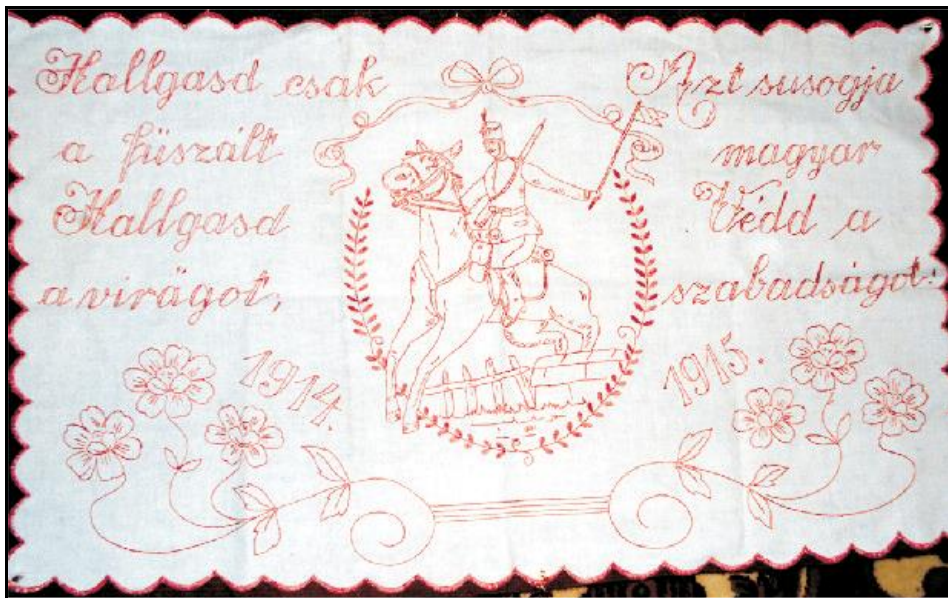 Hallgasd csak
a füszált
Hallgasd
a virágot,
Azt susogja
magyar
Védd a
szabadságot!
1914.
1915.